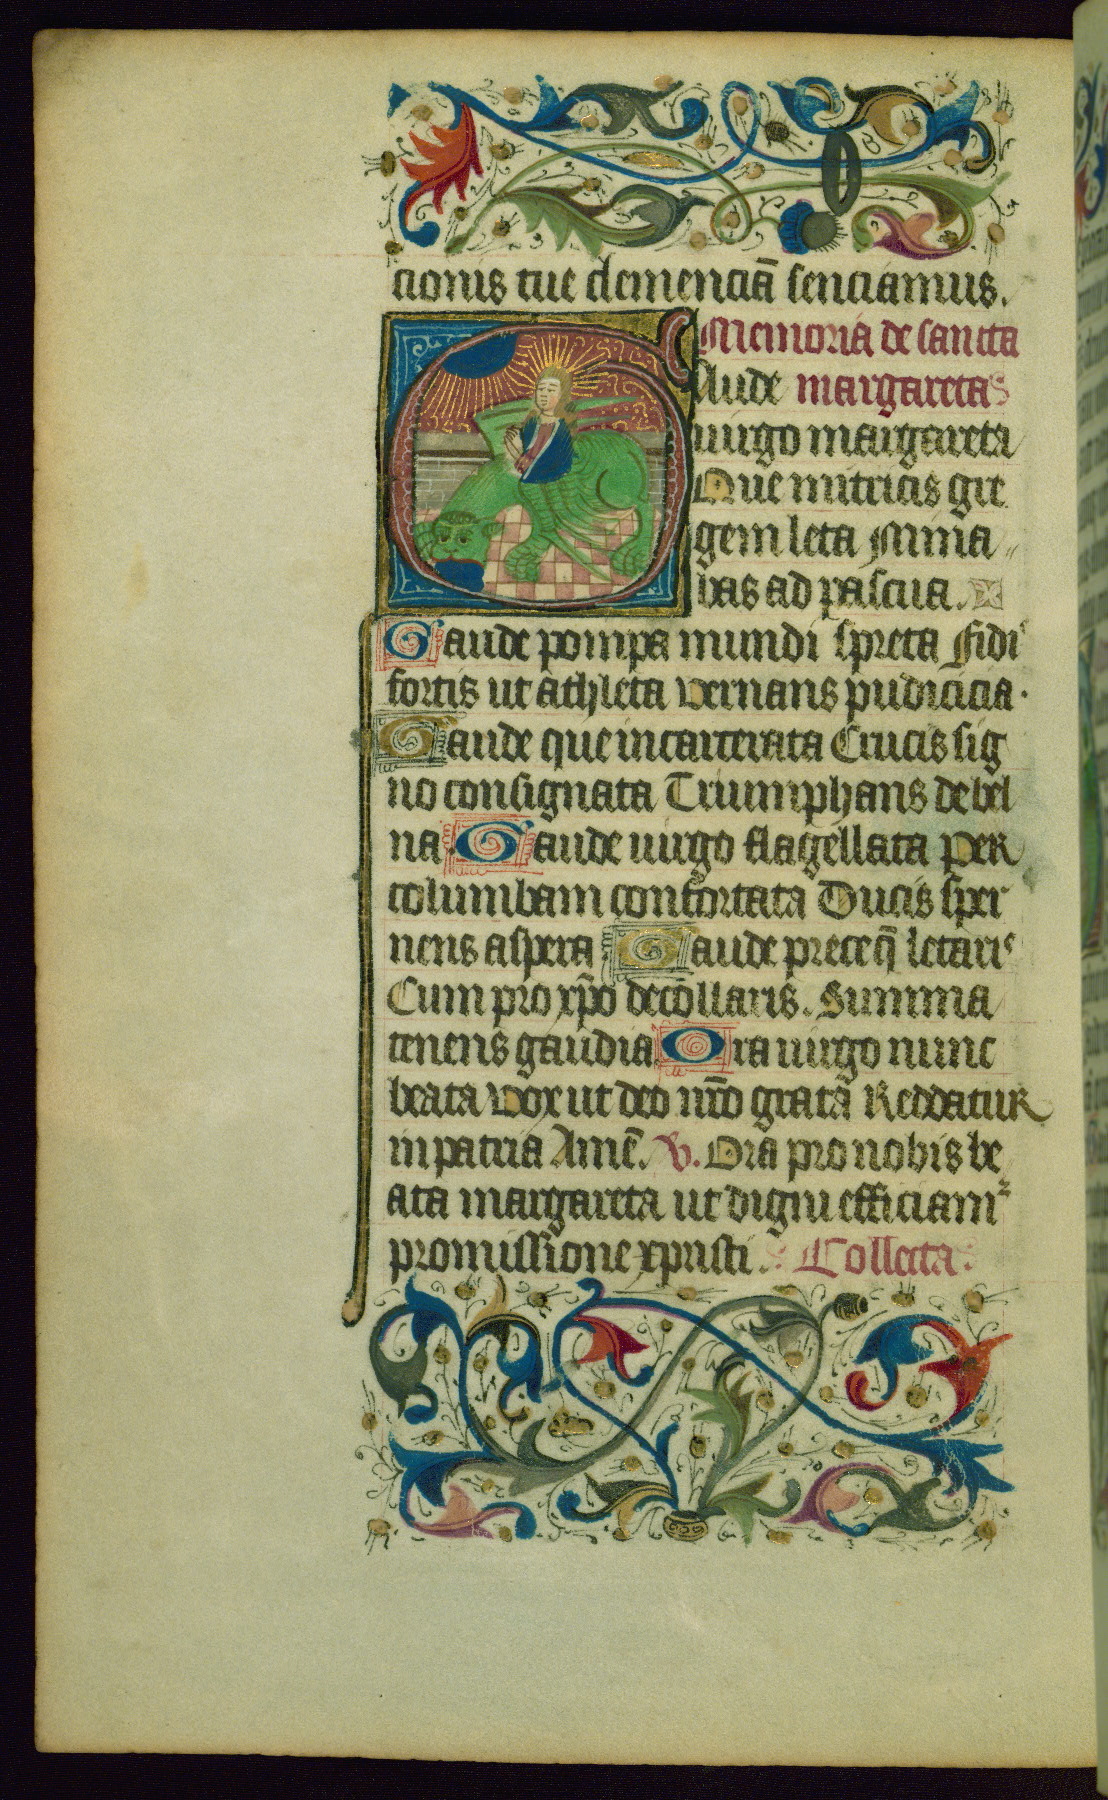 cionis tue clemenciā senciamus.
Memoria de sancta
Aude margareta
uirgo margareta
Que nutricis gre
gem leta Mina
bas ad pascua.
Gaude pompa mundi spreta Fidi
fortis ut athleta vernans pudicicia.
Gaude que incarcerata Crucis sig
no consignata Triumphans de bel
na Gaude uirgo flagellata Per
columbam confortata Ducis sper
nens aspera Gaude prece q̄ letaris
Cum pro xp̄o decollaris. Summa
tenens gaudia Ora uirgo nunc
beata Vox ut deo nr̄o grata Reddatur
in patria Amē. V. Ora pro nobis be
ata margareta ut digni efficiam
promissione xpristi. Collecta.